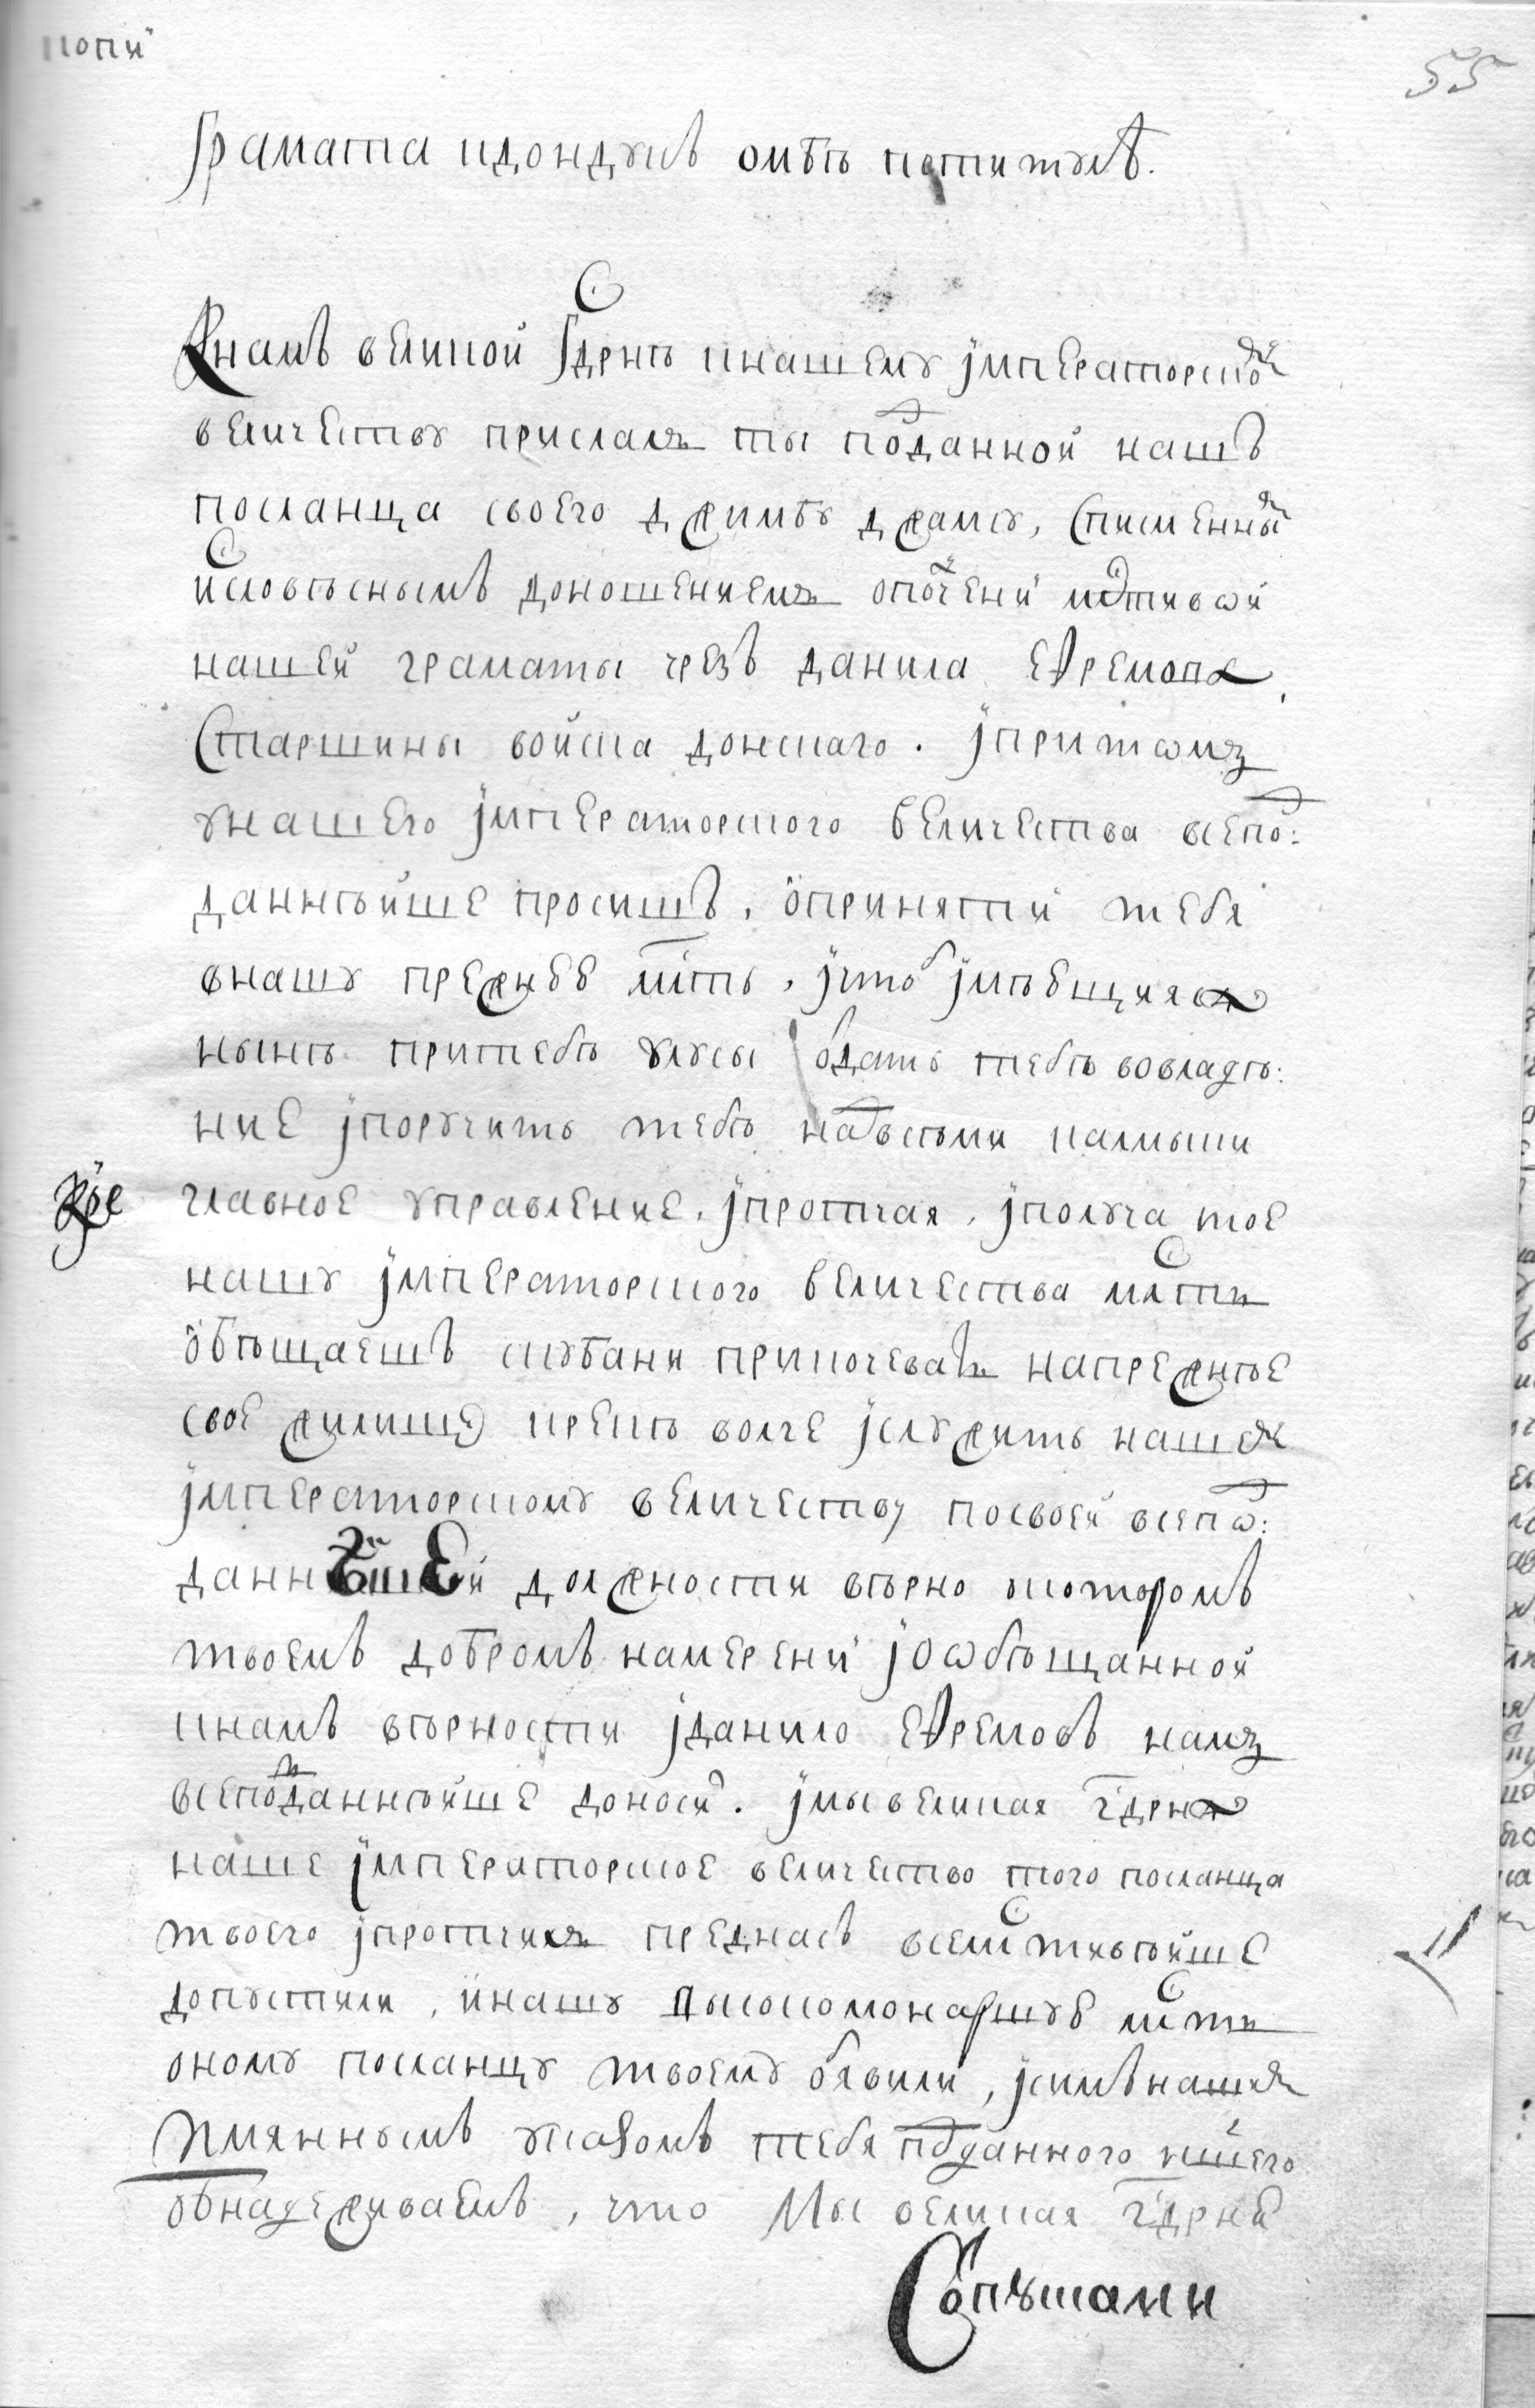 копия
55
Грамата кдондукъ омбѣ потитулѣ.
Кнамъ великой Гдрнѣ инашему імператорскому
величеству прислалъ ты подданной нашъ
посланца своего джимбу джамсу, Списменнымъ
исловѣснымъ доношениемъ ополучении милостивои
нашей граматы чрезъ данила Ефремова
Старшины войска донскаго. іпритомъ
унашего імператорского величества всепод:
даннѣйше просишъ, опринятии тебя
внашу прежнюю млсть, ічтоб імѣющияся
нынѣ притебѣ улусы отдать тебѣ вовладѣ:
ние іпоручить тебѣ надвсѣми калмыки
главное управление, іпротчая, іполуча тое
нашу імператорского величества млсть
обѣщаешъ скубани прикочевать напрежнѣе
свое жилище крекѣ волге іслужить нашему
імператорскому величеству посвоей всепод:
даннѣйшей должности вѣрно окотором
твоемъ добромъ намерении іообѣщанной
кнамъ вѣрности іданило Ефремовъ намъ
всеподданнѣйше доносил. імы великая гдрня
наше імператорское величество того посланца
твоего іпротчихъ преднасъ всемилостивѣйше
допустили, инашу высокомонаршую млсть
оному посланцу твоему обявили, ісимъ нашимъ
імяннымъ указомъ тебя подданного ншего
обнадеживаемъ, что Мы великая гдрня
Сопѣшани